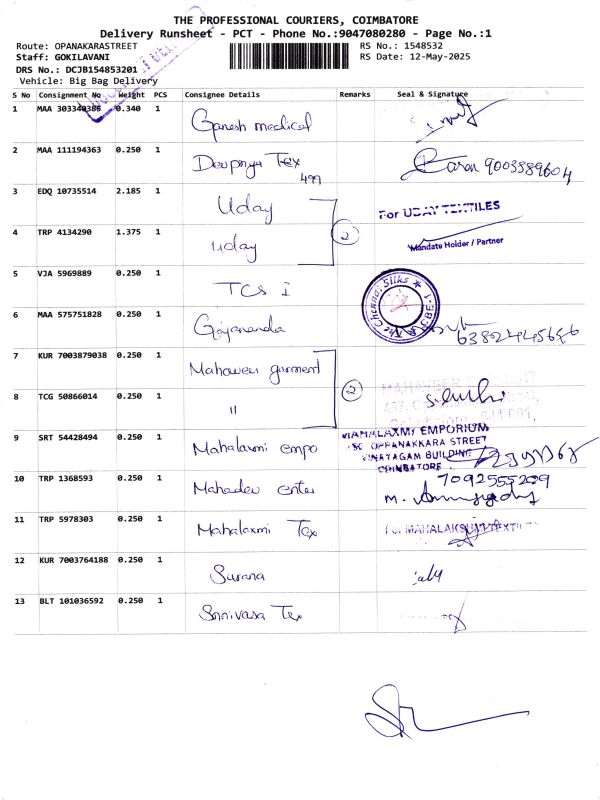 THE PROFESSIONAL COURIERS, COIMBATORE
Delivery Runsheet - PCT - Phone No.:9047080280 - Page No.:1
Route: OPANAKARASTREET RS No.: 1548532
Staff: GOKILAVANI RS Date: 12-May-2025
DRS No.: DCJB154853201
Vehicle: Big Bag Delivery
S No Consignment No Weight PCS Consignee Details Remarks Seal & Signature
1 MAA 303340386 0.340 1 Ganesh medical
2 MAA 111194363 0.250 1 Devpriya Tex 499 9003889604
3 EDQ 10735514 2.185 1 Uday For UDAY TEXTILES
2
4 TRP 4134290 1.375 1 Uday Mandate Holder / Partner
5 VJA 5969889 0.250 1 TCS i The Chennai Silks CBE-1
6 MAA 575751828 0.250 1 Gajananda 6382445656
7 KUR 7003879038 0.250 1 Mahaveer garment
2
8 TCG 50866014 0.250 1 "
9 SRT 54428494 0.250 1 Mahalaxmi empo MAHALAXMI EMPORIUM
OPPANAKKARA STREET
VINAYAGAM BUILDING
COIMBATORE
10 TRP 1368593 0.250 1 Mahadev enter 7092555209
11 TRP 5978303 0.250 1 Mahalaxmi Tex For MAHALAKSHMI TEXTILES
12 KUR 7003764188 0.250 1 Surana
13 BLT 101036592 0.250 1 Srinivasa Tex